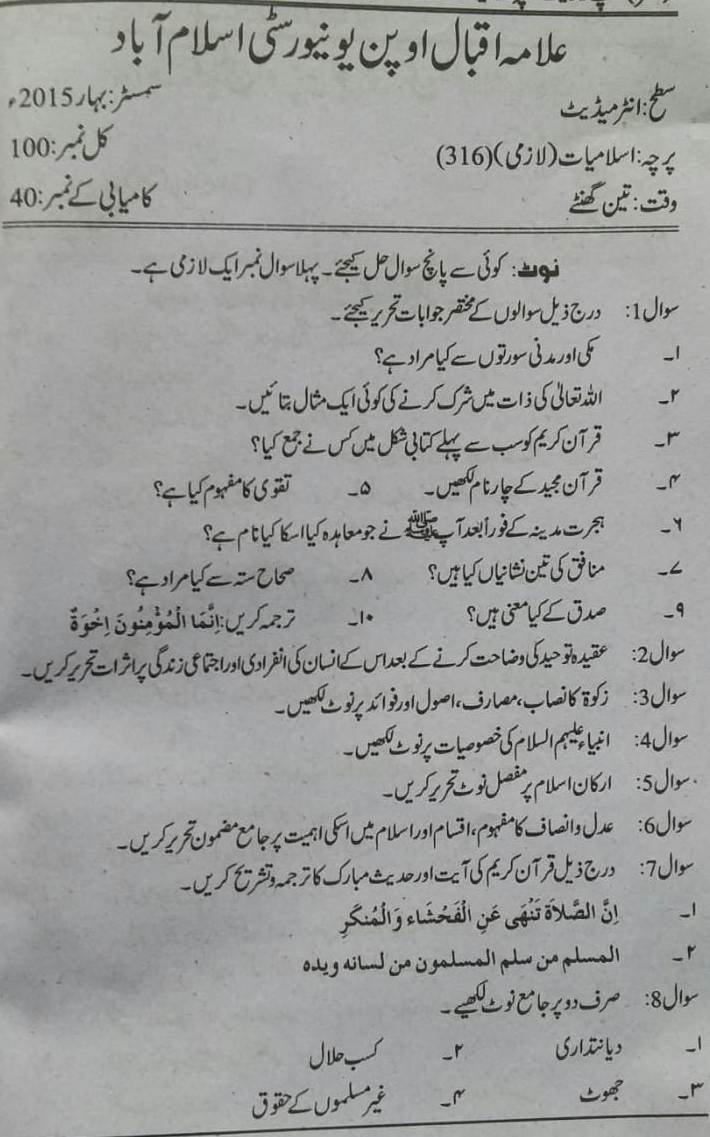 علامہ اقبال اوپن یونیورسٹی اسلام آباد
سطح: انٹرمیڈیٹ سمسٹر: بہار 2015ء
پرچہ: اسلامیات (لازمی) (316) کل نمبر: 100
وقت: تین گھنٹے کامیابی کے نمبر: 40
نوٹ: کوئی سے پانچ سوال حل کیجئے۔ پہلا سوال نمبر ایک لازمی ہے۔
سوال 1: درج ذیل سوالوں کے مختصر جوابات تحریر کیجئے۔
۱۔ مکی اور مدنی سورتوں سے کیا مراد ہے؟
۲۔ اللہ تعالیٰ کی ذات میں شرک کرنے کی کوئی ایک مثال بتائیں۔
۳۔ قرآن کریم کو سب سے پہلے کتابی شکل میں کس نے جمع کیا؟
۴۔ قرآن مجید کے چار نام لکھیں۔ ۵۔ تقویٰ کا مفہوم کیا ہے؟
۶۔ ہجرت مدینہ کے فوراً بعد آپ ﷺ نے جو معاہدہ کیا اسکا کیا نام ہے؟
۷۔ منافق کی تین نشانیاں کیا ہیں؟ ۸۔ صحاح ستہ سے کیا مراد ہے؟
۹۔ صدق کے کیا معنی ہیں؟ ۱۰۔ ترجمہ کریں: اِنَّمَا الْمُؤْمِنُونَ اِخْوَةٌ
سوال 2: عقیدہ توحید کی وضاحت کرنے کے بعد اس کے انسان کی انفرادی اور اجتماعی زندگی پر اثرات تحریر کریں۔
سوال 3: زکوٰۃ کا نصاب، مصارف، اصول اور فوائد پر نوٹ لکھیں۔
سوال 4: انبیاء علیہم السلام کی خصوصیات پر نوٹ لکھیں۔
سوال 5: ارکان اسلام پر مفصل نوٹ تحریر کریں۔
سوال 6: عدل و انصاف کا مفہوم، اقسام اور اسلام میں اسکی اہمیت پر جامع مضمون تحریر کریں۔
سوال 7: درج ذیل قرآن کریم کی آیت اور حدیث مبارک کا ترجمہ و تشریح کریں۔
۱۔ اِنَّ الصَّلَاةَ تَنْهَى عَنِ الْفَحْشَاء وَالْمُنكَرِ
۲۔ المسلم من سلم المسلمون من لسانه ويده
سوال 8: صرف دو پر جامع نوٹ لکھیے۔
۱۔ دیانتداری ۲۔ کسب حلال
۳۔ جھوٹ ۴۔ غیر مسلموں کے حقوق